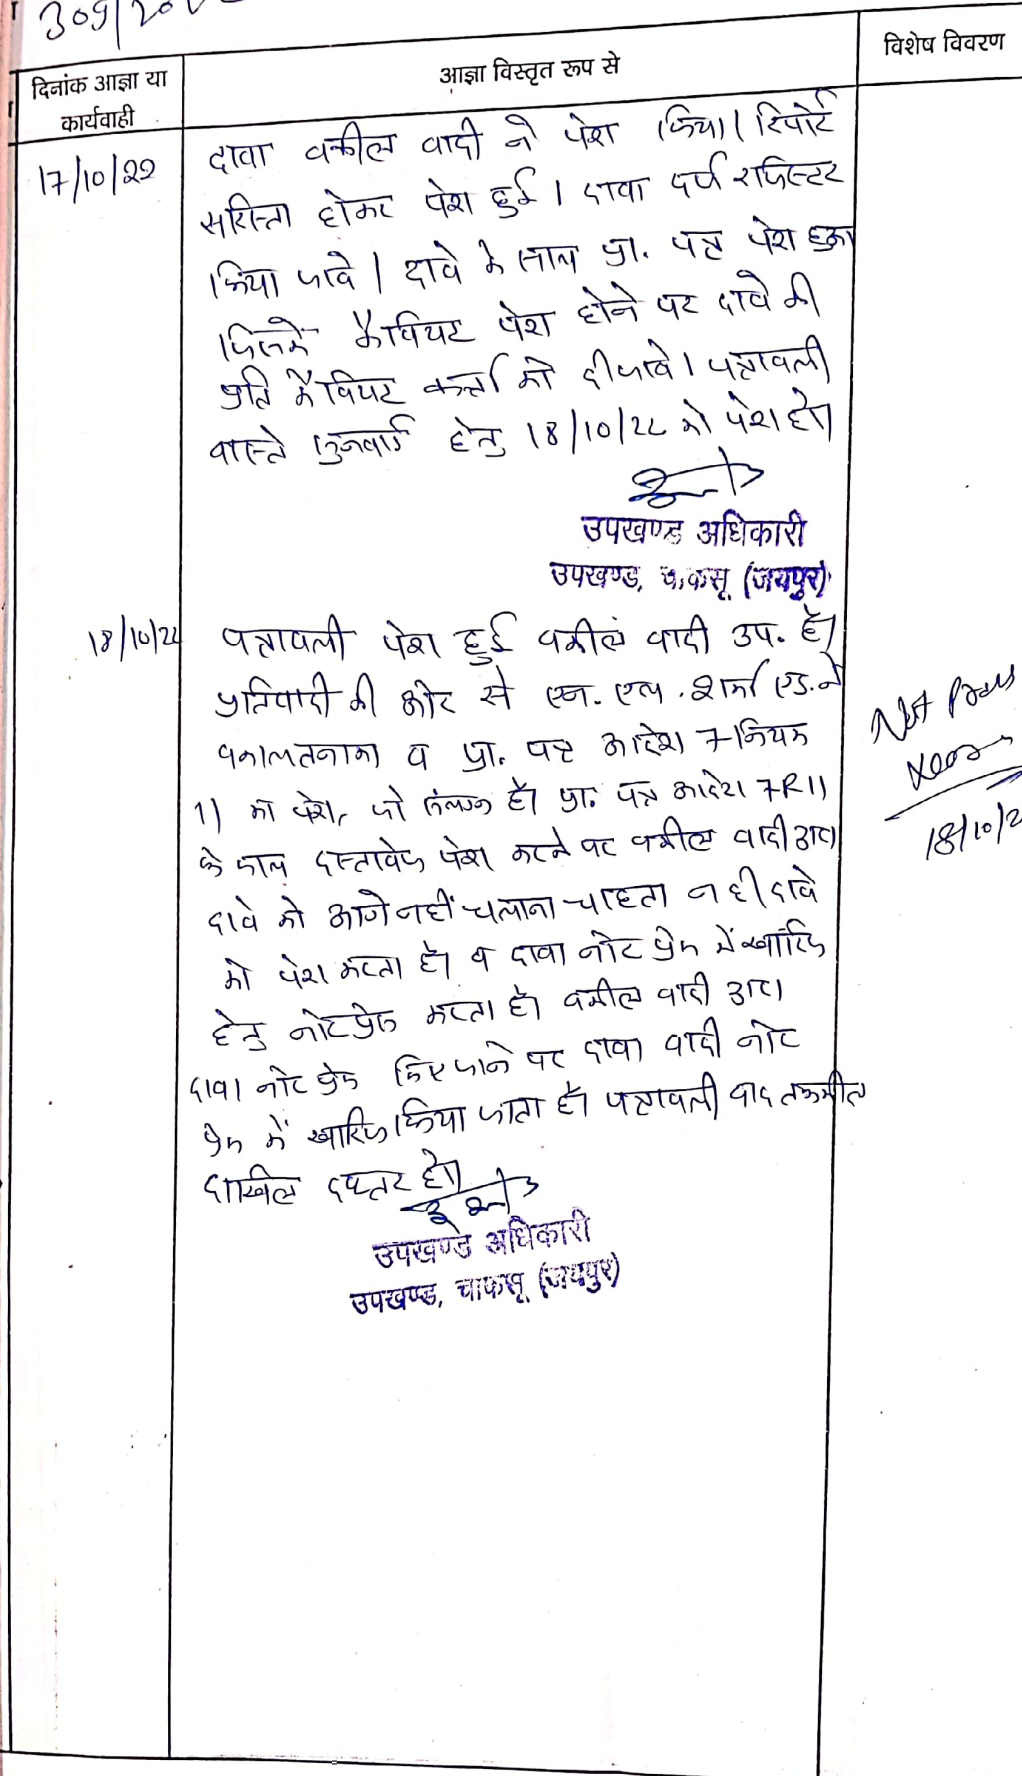 309/20
दिनांक आज्ञा या
कार्यवाही
आज्ञा विस्तृत रूप से
विशेष विवरण
17/10/22
दावा वकील वादी ने पेश किया। रिपोर्ट
सरिस्ता होकर पेश हुई। दावा दर्ज रजिस्टर
किया जावे। दावे के साथ प्रा. पत्र पेश हुआ
जिसमें कैवियट पेश होने पर दावे की
प्रति कैवियट कर्ता को दी जावे। पत्रावली
वास्ते सुनवाई हेतु 18/10/22 को पेश हो।
उपखण्ड अधिकारी
उपखण्ड, चाकसू (जयपुर)
18/10/22
पत्रावली पेश हुई वकील वादी उप. है।
प्रतिवादी की ओर से एन. एल. शर्मा एड. ने
वकालतनामा व प्रा. पत्र आदेश 7 नियम
11 का पेश, जो संलग्न है। प्रा. पत्र आदेश 7R11
के साथ दस्तावेज पेश करने पर वकील वादी द्वारा
दावे को आगे नहीं चलाना चाहता न ही दावे
को पेश करता है। व दावा नोट प्रेस में खारिज
हेतु नोट प्रेस करता है। वकील वादी द्वारा
दावा नोट प्रेस किए जाने पर दावा वादी नोट
प्रेस में खारिज किया जाता है। पत्रावली बाद तकमील
दाखिल दफ्तर हो।
उपखण्ड अधिकारी
उपखण्ड, चाकसू (जयपुर)
Not Press
18/10/2